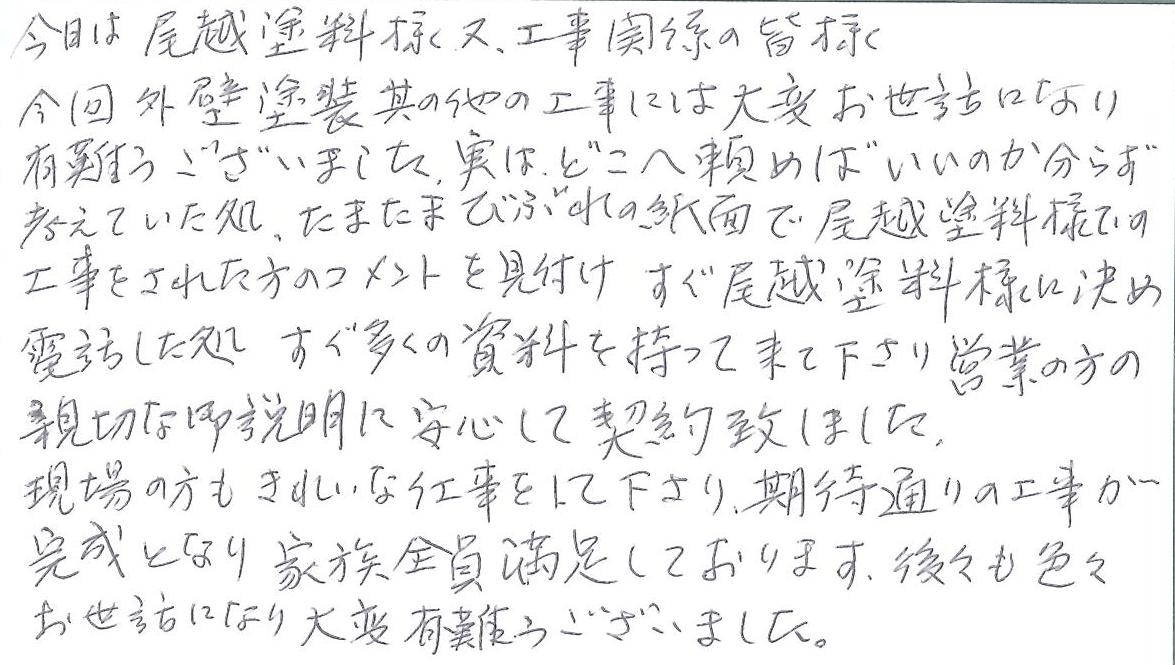 今日は 尾越塗料様 又、工事関係の皆様
今回 外壁塗装其の他の工事には大変お世話になり
有難うございました、実は、どこへ頼めばいいのか分らず
考えていた処、たまたまびぶれの紙面で尾越塗料様での
工事をされた方のコメントを見付け すぐ尾越塗料様に決め
電話した処 すぐ多くの資料を持って来て下さり営業の方の
親切な御説明に安心して契約致しました、
現場の方もきれいな仕事をして下さり、期待通りの工事が
完成となり家族全員満足しております、後々も色々
お世話になり大変有難うございました。